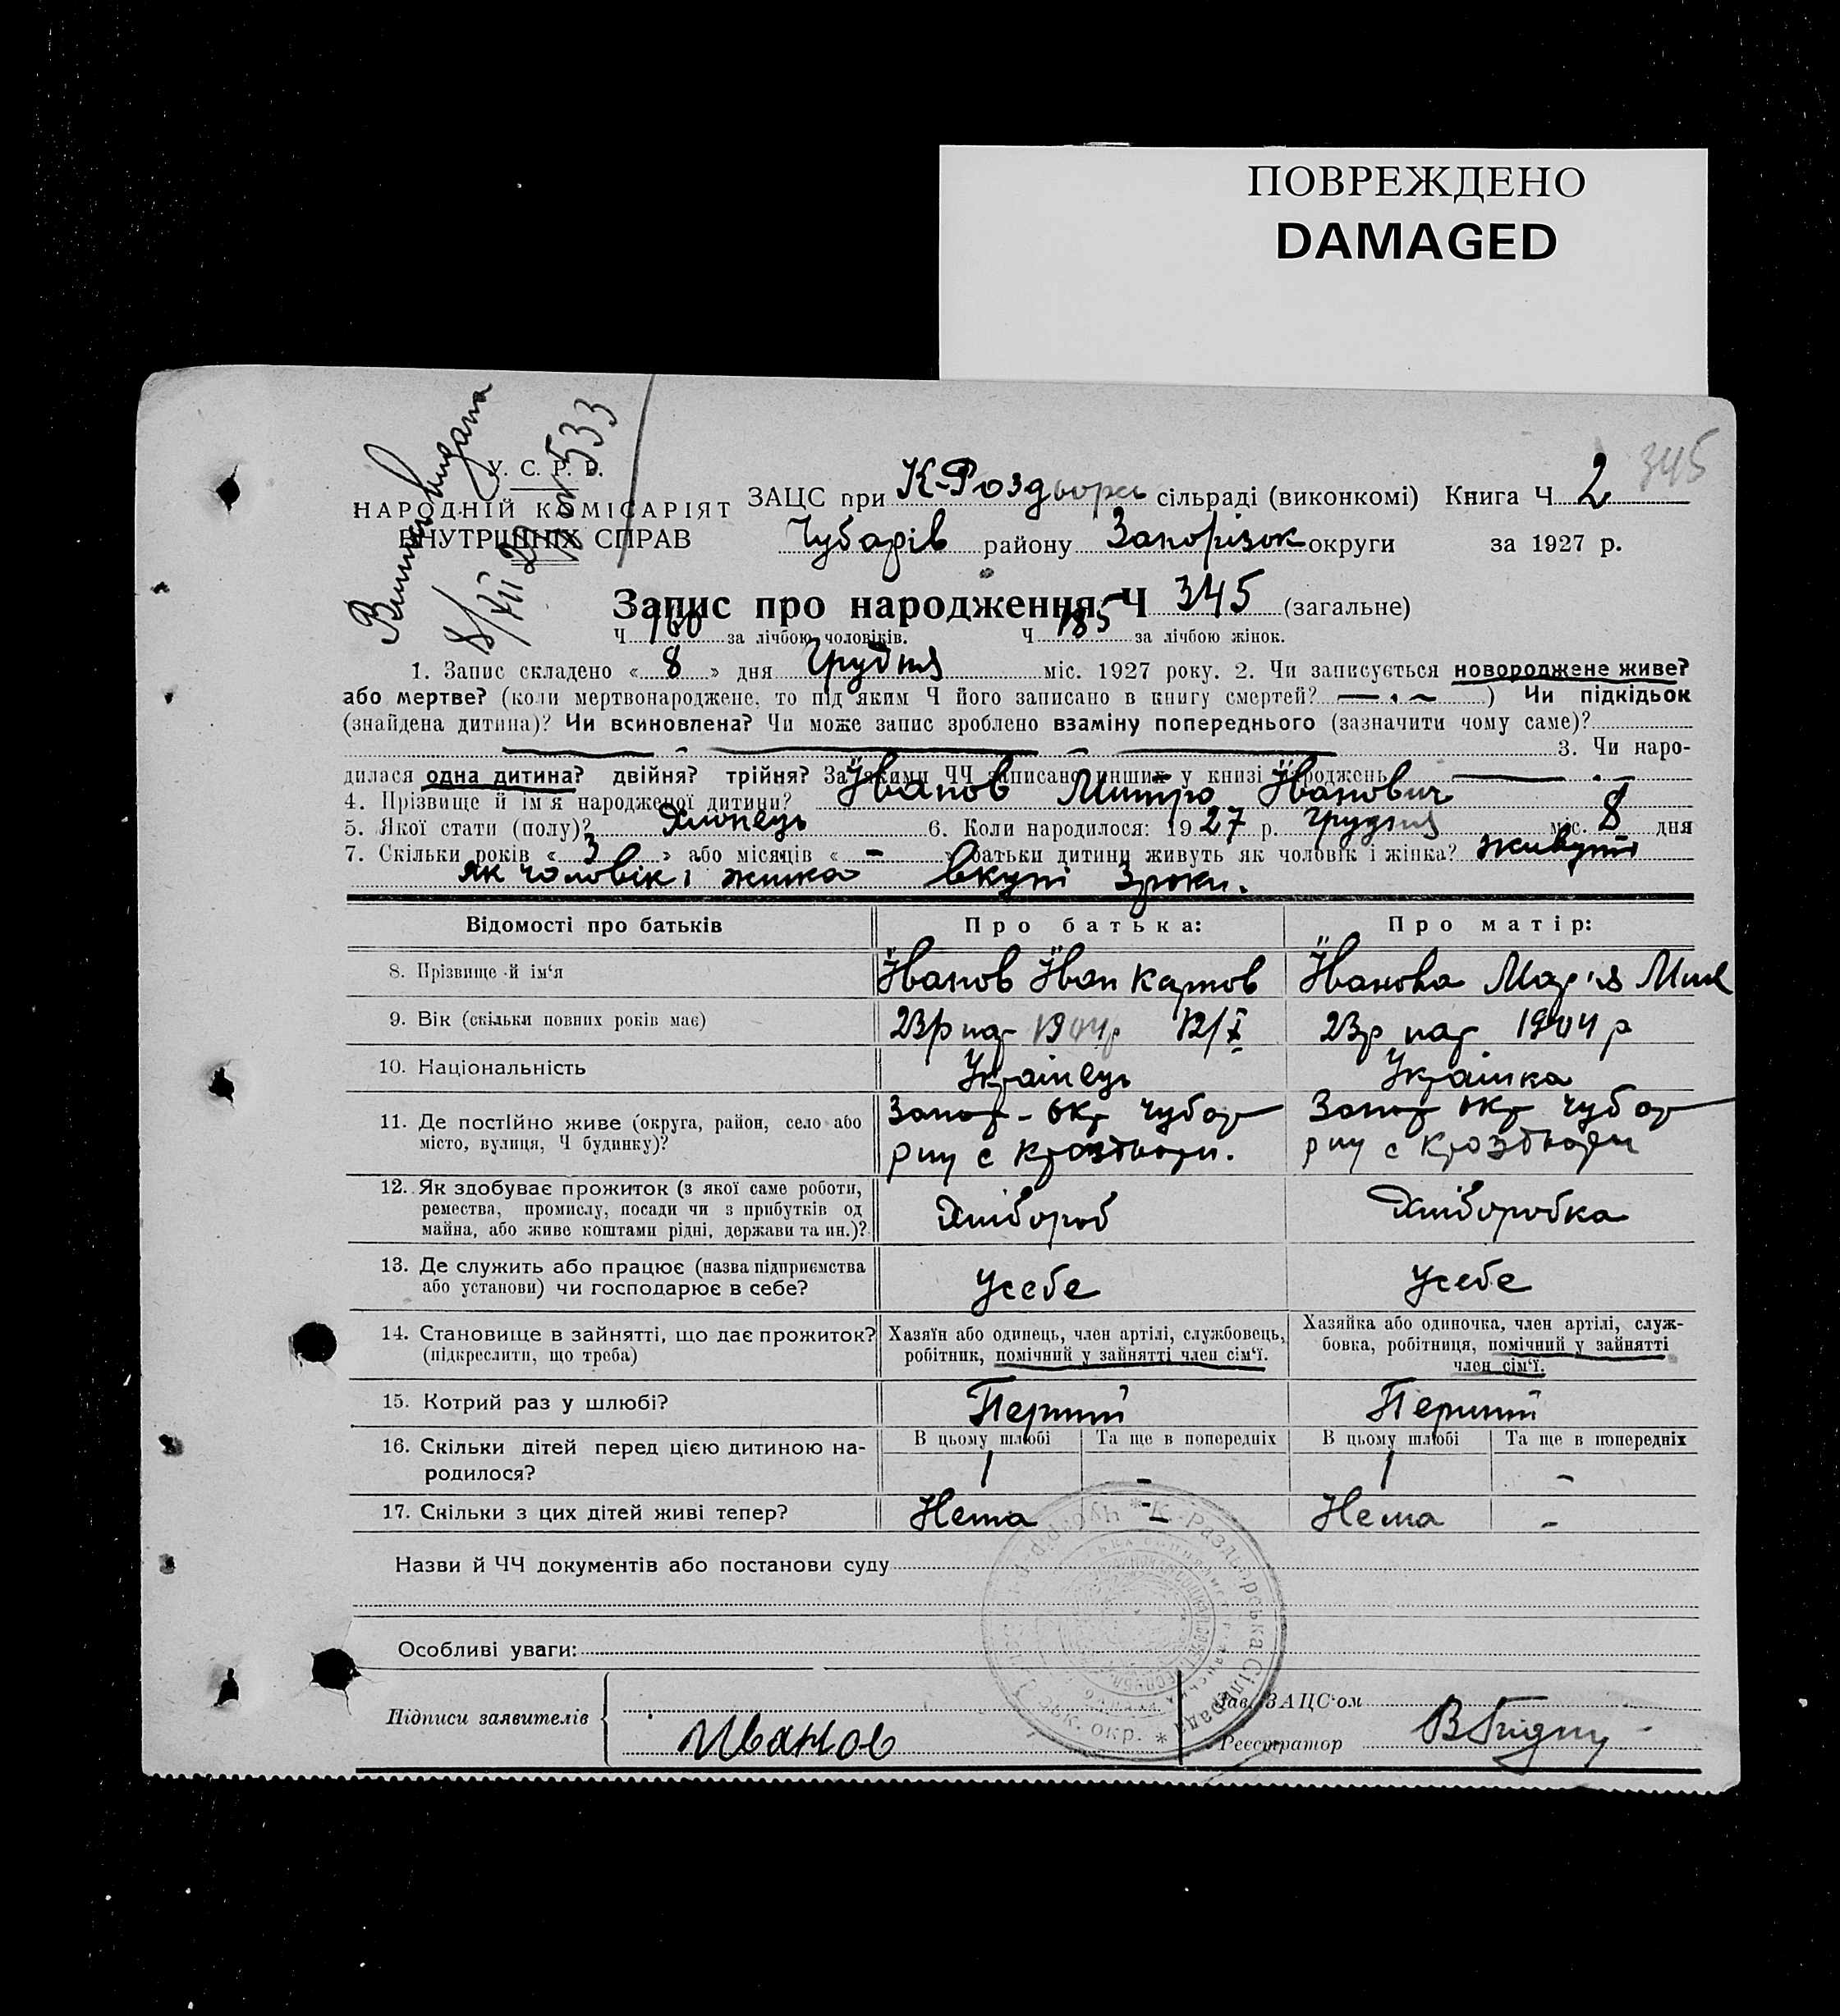 ПОВРЕЖДЕНО
DAMAGED
345
У. С. Р. Р.
НАРОДНІЙ КОМІСАРІЯТ
ВНУТРІШНІХ СПРАВ
Виписка видана
8/XII 27 № 533
ЗАЦС при К-Роздори сільраді (виконкомі) Книга Ч 2
Чубарів району Запорізок округи за 1927 р.
Запис про народження Ч 345 (загальне)
Ч 160 за лічбою чоловіків. Ч 185 за лічбою жінок.
1. Запис складено « 8 » дня Грудня міс. 1927 року. 2. Чи записується новороджене живе?
або мертве? (коли мертвонароджене, то під яким Ч його записано в книгу смертей? ) Чи підкідьок
(знайдена дитина)? Чи всиновлена? Чи може запис зроблено взаміну попереднього (зазначити чому саме)?
3. Чи наро-
дилася одна дитина? двійня? трійня? За якими ЧЧ записано инших у книзі народжень
4. Прізвище й ім'я народженої дитини? Іванов Митро Іванович
5. Якої стати (полу)? Хлопець 6. Коли народилося: 1927 р. грудня міс. 8 дня
7. Скільки років « 3 » або місяців « - » батьки дитини живуть як чоловік і жінка? живуть
як чоловік і жинка вкупі 3 роки.
Відомості про батьків Про батька: Про матір:
8. Прізвище й ім'я Іванов Іван Карпов Іванова Мар'я
9. Вік (скільки повних років має) 23 р нар 1904 р 12/X 23 р нар 1904 р
10. Національність Українець Українка
11. Де постійно живе (округа, район, село або Запор-окр Чубар Запор окр Чубар
місто, вулиця, Ч будинку)? рну с Кроздори. рну с Кроздори
12. Як здобуває прожиток (з якої саме роботи,
ремества, промислу, посади чи з прибутків од Хлібороб Хліборобка
майна, або живе коштами рідні, держави та ин.)?
13. Де служить або працює (назва підприємства
або установи) чи господарює в себе? Усебе Усебе
14. Становище в зайнятті, що дає прожиток? Хазяїн або одинець, член артілі, службовець, Хазяйка або одиночка, член артілі, служ-
(підкреслити, що треба) робітник, помічний у зайнятті член сім'ї. бовка, робітниця, помічний у зайнятті
член сім'ї.
15. Котрий раз у шлюбі? Перший Перший
16. Скільки дітей перед цією дитиною на- В цьому шлюбі Та ще в попередніх В цьому шлюбі Та ще в попередніх
родилося? 1 - 1 -
17. Скільки з цих дітей живі тепер? Нема - Нема -
Назви й ЧЧ документів або постанови суду
Особливі уваги:
Підписи заявителів
Зав. ЗАЦС'ом
Иванов
Реєстратор